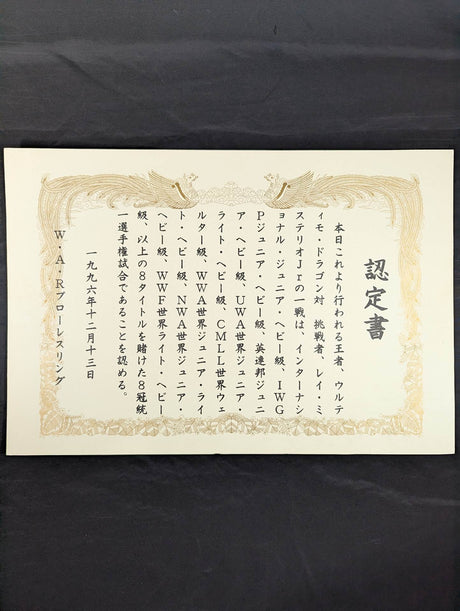 認定書
本日これより行われる王者、ウルテ
ィモ・ドラゴン対 挑戦者、レイ・ミ
ステリオJrの一戦は、インターナシ
ョナル・ジュニア・ヘビー級、IWG
Pジュニア・ヘビー級、英連邦ジュニ
ア・ヘビー級、UWA世界ジュニア・
ライト・ヘビー級、CMLL世界ウェ
ルター級、WWA世界ジュニア・ライ
ト・ヘビー級、NWA世界ジュニア・
ヘビー級、WWF世界ライト・ヘビー
級、以上の8タイトルを賭けた8冠統
一選手権試合であることを認める。
一九九六年十二月十三日
W・A・Rプローレスリング